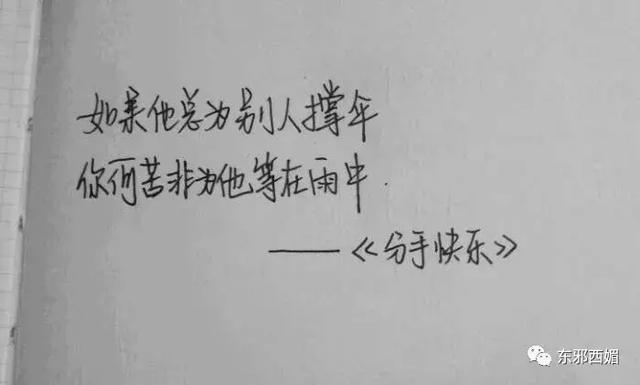 如果他总为别人撑伞
你何苦非为他等在雨中.
——《分手快乐》
东邪西媚